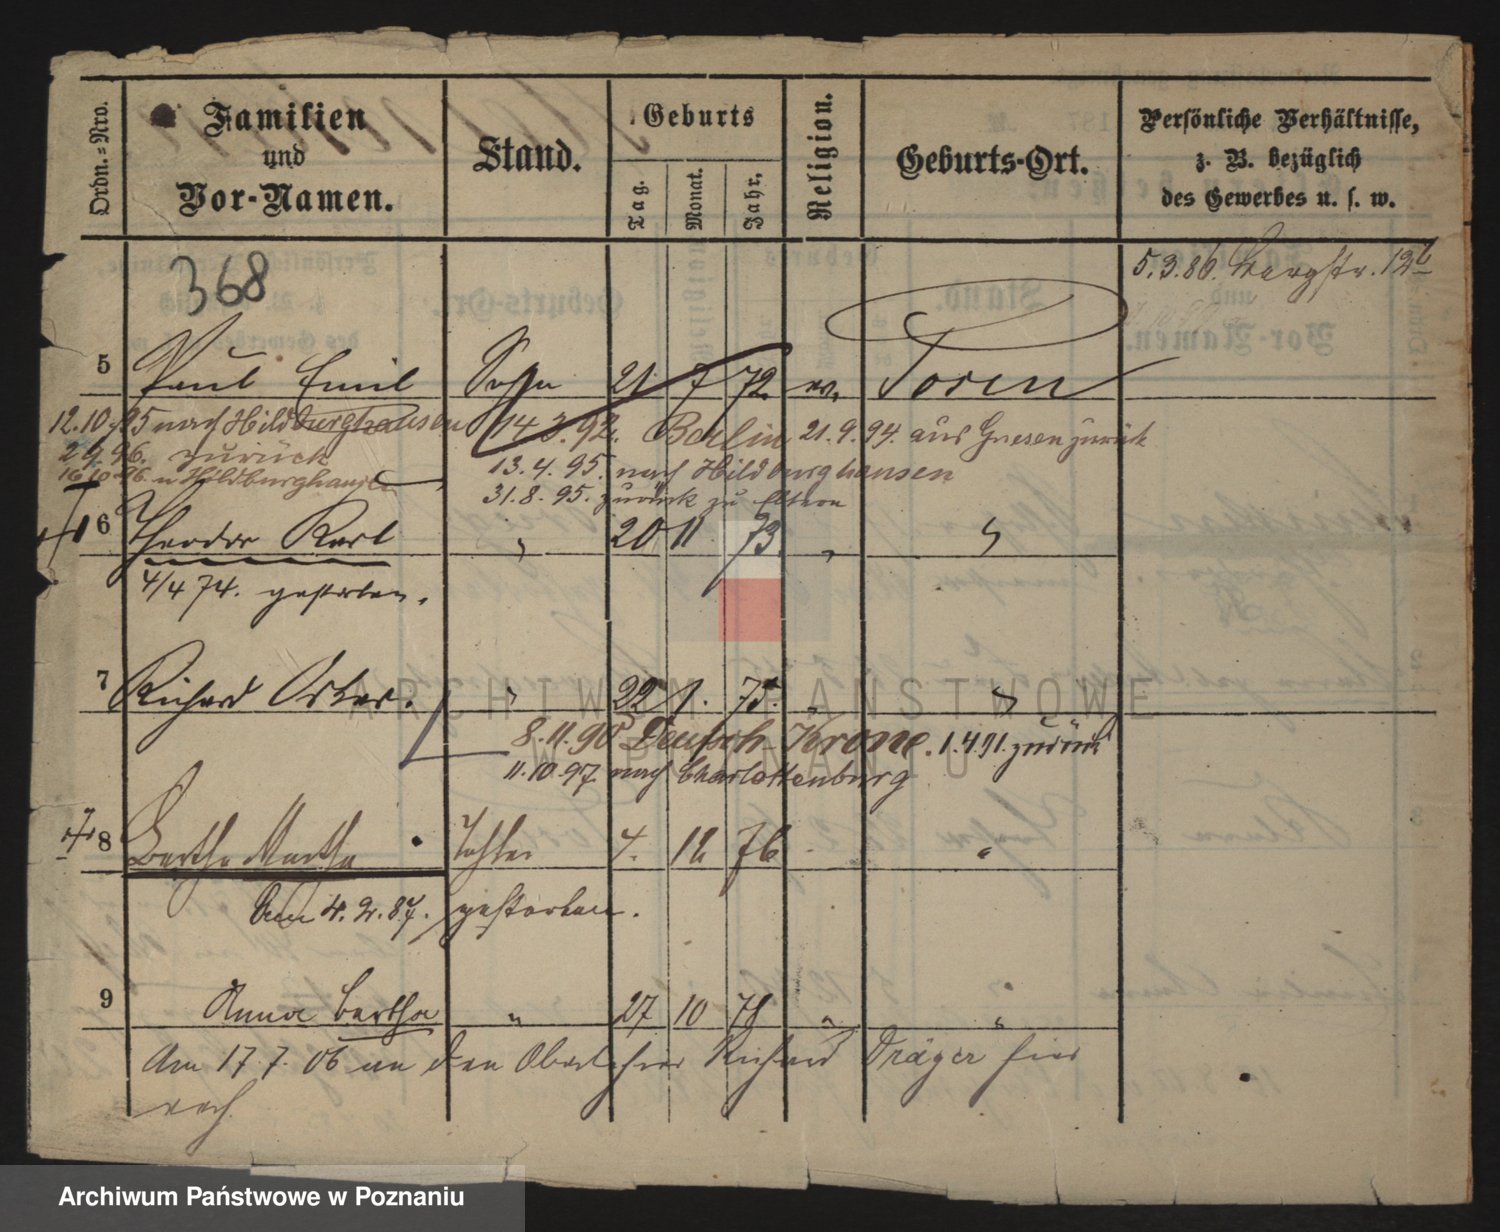 Ordn.-Nro.
Familien
und
Vor-Namen.
Stand.
Geburts
Tag.
Monat.
Jahr.
Religion.
Geburts-Ort.
Persönliche Verhältnisse,
z. B. bezüglich
des Gewerbes u. s. w.
368
5.3.86. Bergstr. 12b
5 Paul Emil Sohn 21. 7 72. ev. Posen
12.10.95 nach Hildburghausen 14 3.92. Berlin 21.9.94. aus Gnesen zurück
2 9 96. zurück 13.4.95. nach Hildburghausen
16 10.96. n Hildburghausen 31.8.95. zurück zu Eltern
6 Theodor Karl " 20 11 73. " "
4/4 74. gestorben.
7 Richard Oskar. " 22 1. 75. " "
8.11.90 Deutsch Krone. 1.4 91. zurück
11.10.97. nach Charlottenburg
8 Bertha Martha Tochter 4. 12. 76 "
Am 4.2.87. gestorben.
9 Anna Bertha " 27 10 78 " "
Am 17 7. 06 an den Oberlehrer Richard Dräger hier
verh.
ARCHIWUM PAŃSTWOWE
W POZNANIU
Archiwum Państwowe w Poznaniu